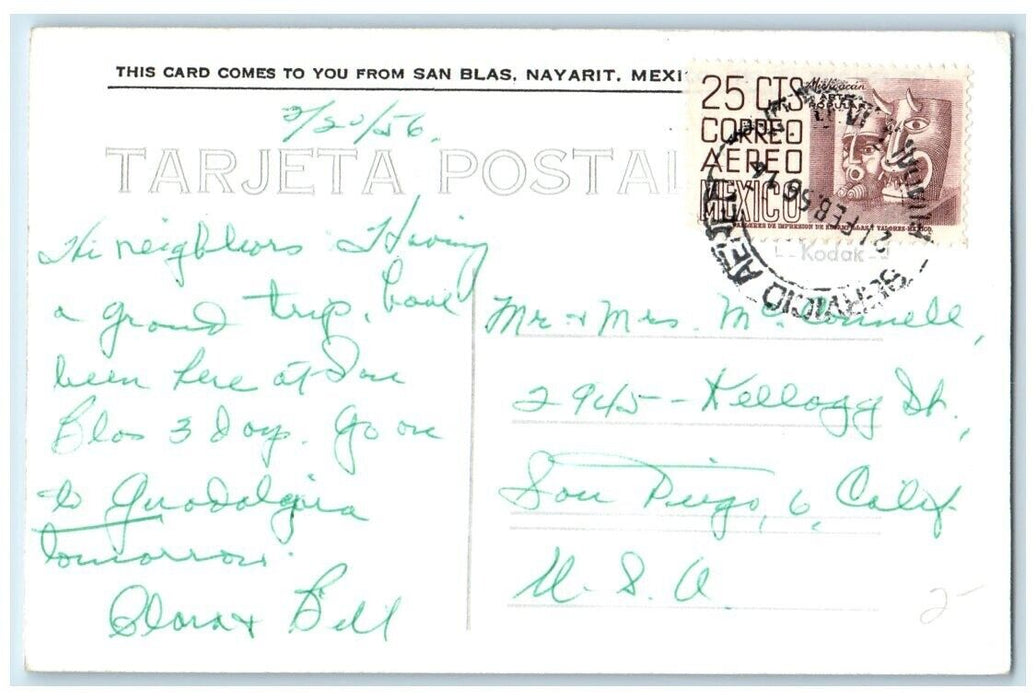 THIS CARD COMES TO YOU FROM SAN BLAS, NAYARIT, MEXI
2/20/56.
TARJETA POSTAL
25 CTS
CORREO
AEREO
MEXICO
Michoacán
ARTE
POPULAR
TALLERES DE IMPRESION DE ESTAMPILLAS Y VALORES-MEXICO.
21 FEB.56
SERVICIO AEREO
Kodak
Hi neighbors. Having
a grand trip, have
been here at San
Blas 3 days. Go on
to Guadalajara
tomorrow.
Clara + Bill
Mr + Mrs. McConnell,
2945 - Kellogg St.,
San Diego, 6, Calif.
U. S. A.
2-